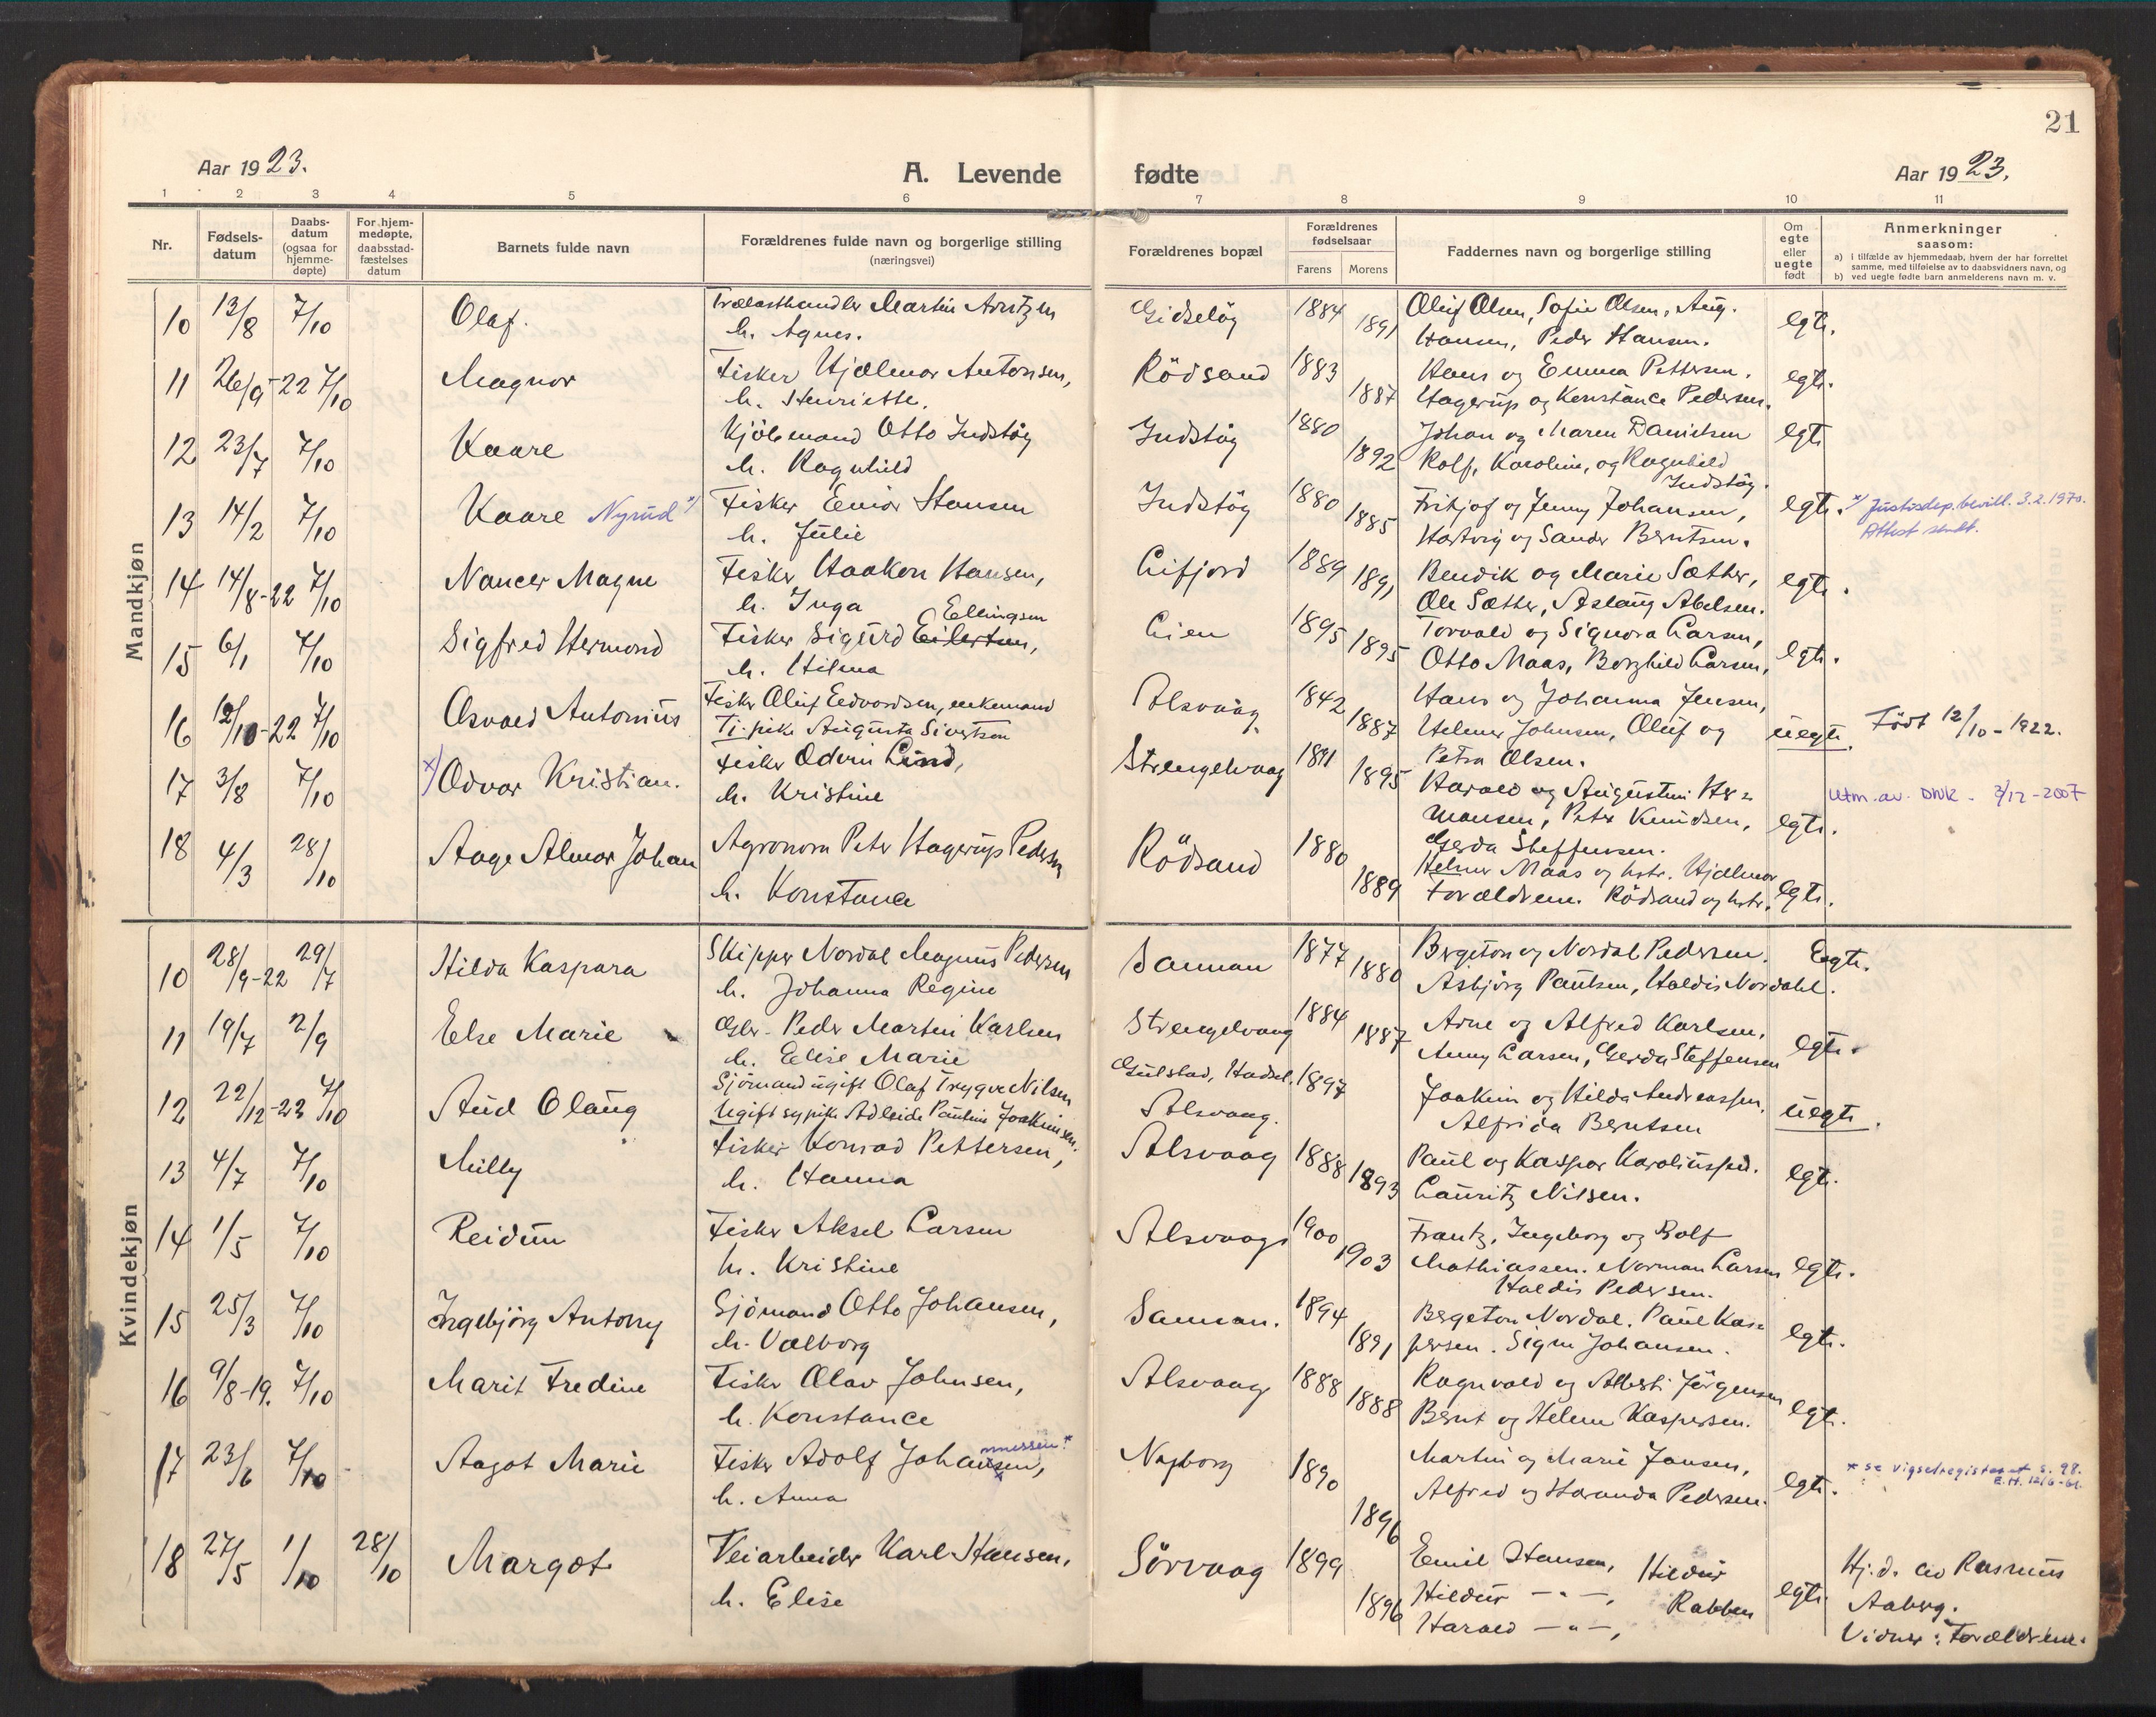 21
Aar 1923.
A. Levende fødte
Aar 1923.
1 2 3 4 5 6 7 8 9 10 11
Nr.
Fødsels-
datum
Daabs-
datum
(ogsaa for
hjemme-
døpte)
For hjem-
medøpte,
daabsstad-
fæstelses
datum
Barnets fulde navn
Forældrenes fulde navn og borgerlige stilling
(næringsvei)
Forældrenes bopæl
Forældrenes
fødselsaar
Farens Morens
Faddernes navn og borgerlige stilling
Om
egte
eller
uegte
født
Anmerkninger
saasom:
a) i tilfælde av hjemmedaab, hvem der har forrettet
samme, med tilføielse av to daabsvidners navn, og
b) ved uegte fødte barn anmelderens navn m. v.
Mandkjøn
10 13/8 7/10 Olaf.
Trælasthandler Martin Arntzen
h. Agnes.
Gidsløy 1884 1891
Oluf Olsen, Sofie Olsen, Aug.
Hansen, Peder Hansen.
egte.
11 26/9-22 7/10 Magnor
Fisker Hjalmar Antonsen,
h. Henriette.
Rödsand 1883 1887
Hans og Emma Pettersen.
Hagerup og Konstance Pedersen.
egte.
12 23/7 7/10 Kaare
Kjöbmand Otto Indstöy
h. Ragnhild
Indstöy 1880 1892
Johan og Maren Danielsen
Rolf, Karoline, og Ragnhild
Indstöy.
egte
13 14/2 7/10 Kaare Nyrud x)
Fisker Einar Hansen
h. Julie
Indstöy 1880 1885
Fritjof og Jenny Johansen,
Hartvig og Sander Berntsen.
egte.
x) Justisdep. bevill. 3.2.1970.
Attest sendt.
14 14/8-22 7/10 Nancer Magne
Fisker Haakon Hansen,
h. Inga
Lifjord 1889 1891
Bendik og Marie Sæther,
Ole Sæther, Aslaug Abelsen.
egte.
15 6/1 7/10 Sigfred Hermond
Ellingsen
Fisker Sigurd Eilertsen,
h. Hilma
Lien 1895 1895
Torvald og Signora Larsen,
Otto Maas, Borghild Larsen,
egte.
16 12/10-22 7/10 Osvald Antonius
Fisker Oluf Edvardsen, enkemand
Tj. pike Augusta Sivertsen
Alsvaag 1842 1887
Hans og Johanna Jensen,
Helmer Johnsen, Oluf og
Petra Olsen.
uegte.
Födt 12/10-1922.
17 3/8 7/10 x) Odvar Kristian.
Fisker Odin Lind,
h. Kristine
Strengelvaag 1891 1895
Harald og Augustin Her-
mansen, Peter Knudsen,
Gerda Steffensen.
egte.
Utm. av. DNK. 3/12-2007
18 4/3 28/10 Aage Almar Johan
Agronom Peter Hagerup Pedersen
h. Konstance
Rödsand 1880 1889
Helmer Maas og hstr. Hjalmar
Forældrene. Rödsand og hstr.
egte.
Kvindekjøn
10 28/9-22 29/7 Hilda Kaspara
Skipper Nordal Magnus Pedersen
h. Johanna Regine
Sannan 1877 1880
Bergeton og Nordal Pedersen.
Asbjörg Paulsen, Haldis Nordahl.
Egte.
11 19/7 2/9 Else Marie
Gbr. Peder Martin Karlsen
h. Elise Marie
Strengelvaag 1884 1887
Arne og Alfred Karlsen,
Anny Larsen, Gerda Steffensen
egte.
12 22/12-22 7/10 Aud Olaug
Sjömand ugift Olaf Trygve Nilsen
Ugift sypike Adleide Pauline Joakimsen.
Gulstad, Hadsel. 1897
Alsvaag.
Joakim og Hilda Andreassen,
Alfrida Berntsen
uegte.
13 4/7 7/10 Milly
Fisker Konrad Pettersen,
h. Hanna
Alsvaag 1888 1893
Paul og Kaspar Karoliussen.
Lauritz Nilsen.
egte.
14 1/5 7/10 Reidun
Fisker Aksel Larsen
h. Kristine
Alsvaag 1900 1903
Frantz, Ingeborg og Rolf
Mathiassen. Norman Larsen
Haldis Pedersen.
egte.
15 25/3 7/10 Ingebjörg Antony
Sjömand Otto Johansen,
h. Valborg
Sannan. 1894 1891
Bergeton Nordal. Paul Kas-
persen. Signe Johansen.
egte.
16 9/8-19. 7/10 Marit Fredine
Fisker Olav Johnsen,
h. Konstance
Alsvaag 1888 1888
Ragnvald og Alberti Jörgensen
Bernt og Helene Kaspersen.
egte.
17 23/6 7/10 Aagot Marie
nnessen x
Fisker Adolf Johansen,
h. Anna
Nyborg 1890 1896
Martin og Marie Jansen,
Alfred og Haranda Pedersen.
egte.
x se vigselregisteret s. 98.
E.H. 12/6-61.
18 27/5 1/10 28/10 Margot
Veiarbeider Karl Hansen,
h. Elise
Sörvaag 1899 1896
Emil Hansen, Hildur
Hildur — " —, Rabben
Harald — " —,
egte.
Hj.d. av Rasmus
Aaberg.
Vidner: Forældrene.